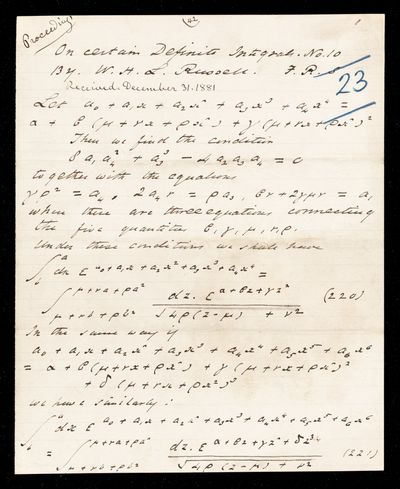 Proceedings
42
1
On certain Definite Integrals. No. 10
By W. H. L. Russell. F.R.S
Received. December 31. 1881
23
Let a₀ + a₁x + a₂x² + a₃x³ + a₄x⁴ =
α + β(μ+νx+ρx²) + γ(μ+νx+ρx²)²
Then we find the condition
8 a₁a₄² + a₃³ − 4a₂a₃a₄ = 0
together with the equations
γρ² = a₄, 2a₄ν = ρa₃, βν+2γμν = a₁
where there are three equations connecting
the five quantities β, γ, μ, ν, ρ.
Under these conditions we shall have
∫ₐᵇ dx ε^(a₀+a₁x+a₂x²+a₃x³+a₄x⁴) =
∫ μ+νa+ρa² dz. ε^(α+βz+γz²)
μ+νb+ρb² √4ρ(z−μ) + ν² (220)
In the same way if
a₀ + a₁x + a₂x² + a₃x³ + a₄x⁴ + a₅x⁵ + a₆x⁶
= α + β(μ+νx+ρx²) + γ(μ+νx+ρx²)²
+ δ(μ+νx+ρx²)³
we have similarly:
∫ dx ε^(a₀+a₁x+a₂x²+a₃x³+a₄x⁴+a₅x⁵+a₆x⁶)
= ∫ μ+νa+ρa² dz. ε^(α+βz+γz²+δz³)
μ+νb+ρb² √4ρ(z−μ) + ν² (221)